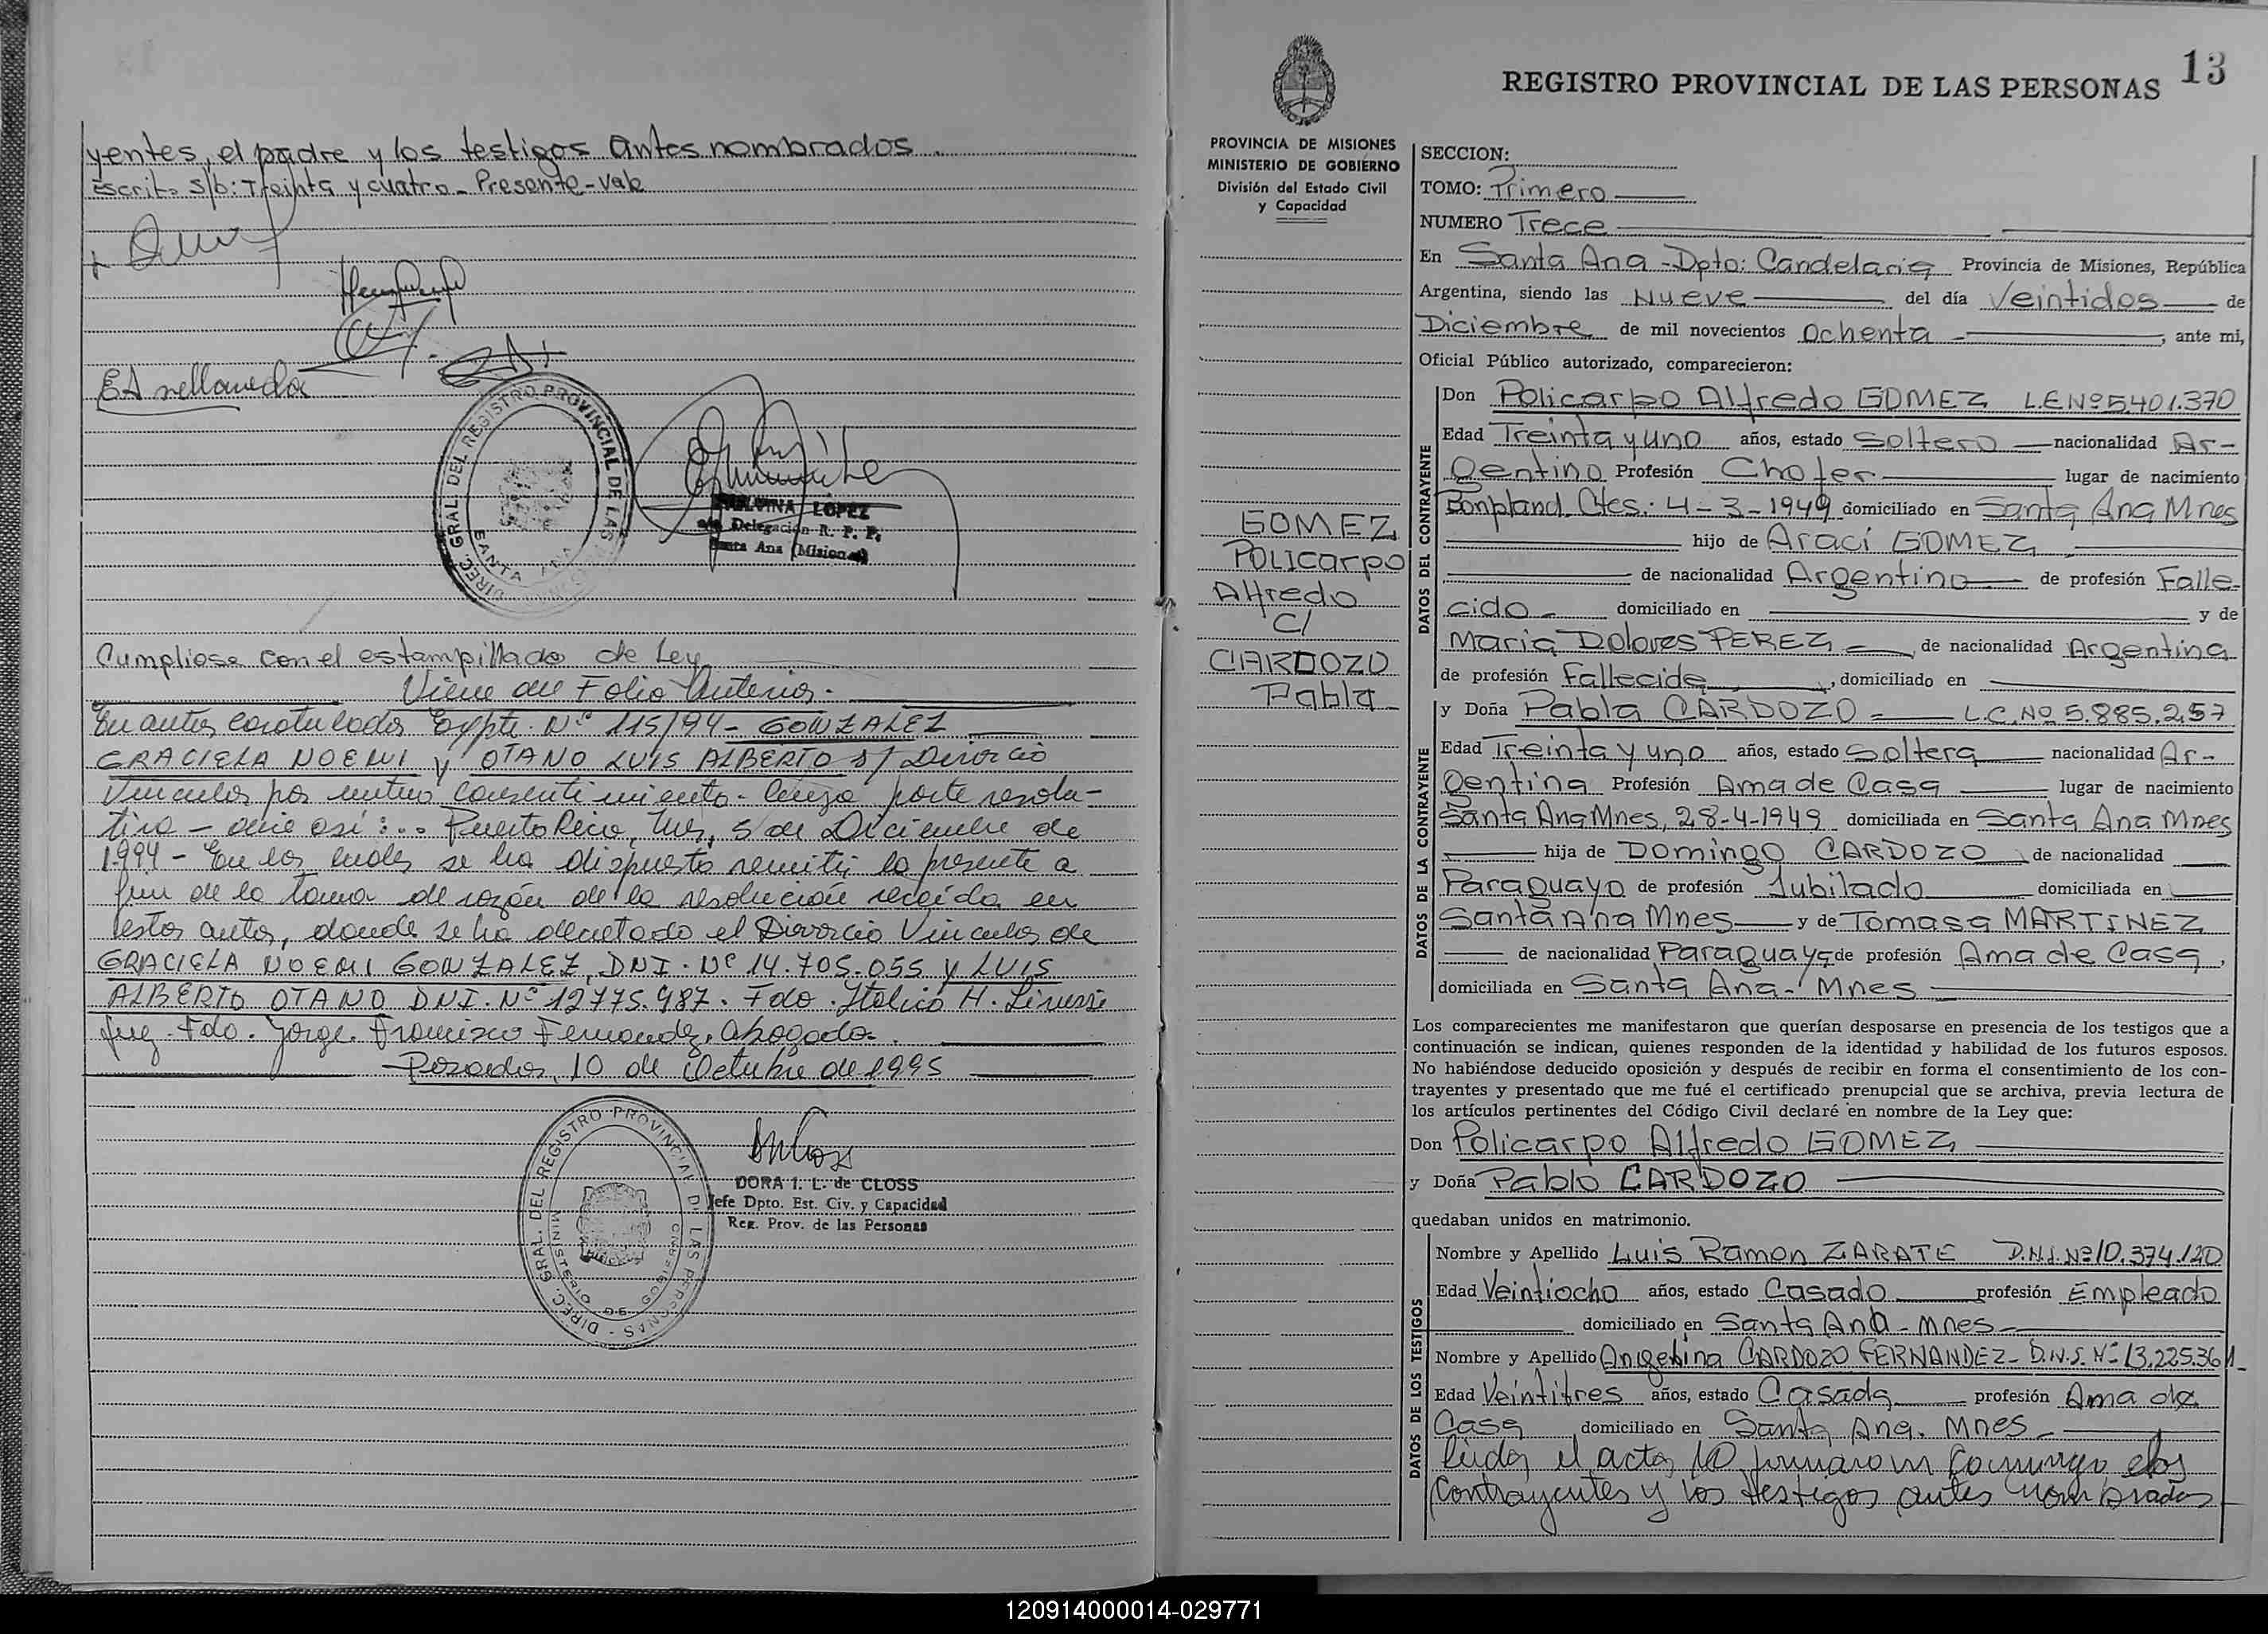 yentes, el padre y los testigos antes nombrados.
Escrito s/b: Treinta y cuatro - Presente - Vale
DIREC. GRAL. DEL REGISTRO PROVINCIAL DE LAS PERSONAS
SANTA ANA
LOPEZ
Delegación R. P. P.
Santa Ana (Misiones)
Cumpliose con el estampillado de Ley
Viene del Folio Anterior.
En autos caratulados Expte. Nº 115/94 - GONZALEZ
GRACIELA NOEMI y OTANO LUIS ALBERTO s/ Divorcio
Vincular por mutuo consentimiento - Cuya parte resolu-
tiva - dice así: .. Puerto Rico, Mns, 5 de Diciembre de
1994 - En los cuales se ha dispuesto remitir la presente a
fin de la toma de razón de la resolución recaída en
estos autos, donde se ha decretado el Divorcio Vincular de
GRACIELA NOEMI GONZALEZ, DNI. Nº 14.705.055 y LUIS
ALBERTO OTANO DNI. Nº 12.775.987. Fdo. Italico H.
Juez. Fdo. Jorge Francisco Fernandez. Abogado.
Posadas, 10 de Octubre de 1995
DIREC. GRAL. DEL REGISTRO PROVINCIAL DE LAS PERSONAS
MINISTERIO DE GOBIERNO
DORA I. L. de CLOSS
Jefe Dpto. Est. Civ. y Capacidad
Reg. Prov. de las Personas
13
REGISTRO PROVINCIAL DE LAS PERSONAS
PROVINCIA DE MISIONES
MINISTERIO DE GOBIERNO
División del Estado Civil
y Capacidad
GOMEZ
POLICARPO
Alfredo
C/
CARDOZO
Pabla
SECCION:
TOMO: Primero
NUMERO Trece
En Santa Ana - Dpto: Candelaria Provincia de Misiones, República
Argentina, siendo las Nueve del día Veintidos de
Diciembre de mil novecientos Ochenta, ante mi,
Oficial Público autorizado, comparecieron:
DATOS DEL CONTRAYENTE
Don Policarpo Alfredo GOMEZ L.E Nº 5.401.370
Edad Treinta y uno años, estado Soltero nacionalidad Ar-
gentino Profesión Chofer lugar de nacimiento
Bonpland Ctes. 4-3-1949 domiciliado en Santa Ana Mnes
hijo de Araci GOMEZ
de nacionalidad Argentino de profesión Falle-
cido - domiciliado en y de
Maria Dolores PEREZ de nacionalidad Argentina
de profesión Fallecida, domiciliado en
DATOS DE LA CONTRAYENTE
y Doña Pabla CARDOZO - L.C. Nº 5.885.257
Edad Treinta y uno años, estado Soltera nacionalidad Ar-
gentina Profesión Ama de Casa lugar de nacimiento
Santa Ana Mnes, 28-4-1949 domiciliada en Santa Ana Mnes
hija de Domingo CARDOZO de nacionalidad
Paraguayo de profesión Jubilado domiciliada en
Santa Ana Mnes y de Tomasa MARTINEZ
de nacionalidad Paraguaya de profesión Ama de Casa,
domiciliada en Santa Ana - Mnes
Los comparecientes me manifestaron que querían desposarse en presencia de los testigos que a
continuación se indican, quienes responden de la identidad y habilidad de los futuros esposos.
No habiéndose deducido oposición y después de recibir en forma el consentimiento de los con-
trayentes y presentado que me fué el certificado prenupcial que se archiva, previa lectura de
los artículos pertinentes del Código Civil declaré en nombre de la Ley que:
Don Policarpo Alfredo GOMEZ
y Doña Pabla CARDOZO
quedaban unidos en matrimonio.
DATOS DE LOS TESTIGOS
Nombre y Apellido Luis Ramon ZARATE D.N.I. Nº 10.374.120
Edad Veintiocho años, estado Casado profesión Empleado
domiciliado en Santa Ana - Mnes -
Nombre y Apellido Angelina CARDOZO FERNANDEZ - D.N.I. Nº 13.225.361
Edad Veintitres años, estado Casada profesión Ama de
Casa domiciliado en Santa Ana. Mnes -
Leida el acta, la firmaron conmigo, los
Contrayentes y los testigos antes nombrados
120914000014-029771